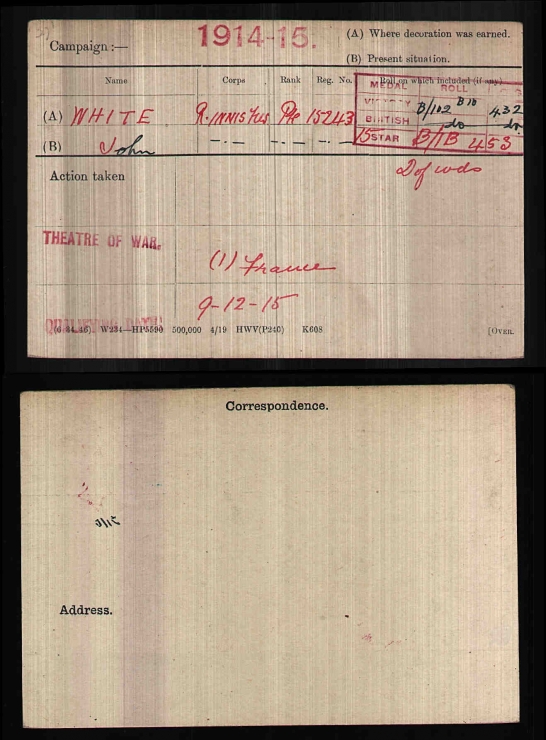 Campaign :—
1914-15.
(A) Where decoration was earned.
(B) Present situation.
Name Corps Rank Reg. No. Roll on which included (if any)
MEDAL ROLL
(A) WHITE R. Innis Fus Pte 15243
VICTORY B/102 B18 432
BRITISH do do
15 STAR B/1B 453
(B) John
Action taken
D of wds
THEATRE OF WAR.
(1) France
9-12-15
QUALIFYING DATE
(6 34 46) W234—HP5590 500,000 4/19 HWV(P240) K608 [OVER.
Correspondence.
Address.